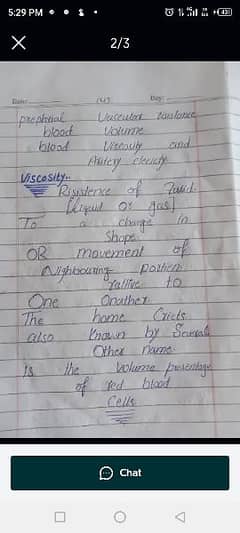 5:29 PM
2/3
Date: 143 Day:
prepheral Vascular
blood Volume
blood Viscosity and
Artery
Viscosity:-
Risistence of
(Liquid or gas)
To a change in
Shape
OR movement of
Nighbouring portion
rallive to
One Onather
The home Cricts
also Known by Several
Other name
Is the Volume
of red blood
Cells
Chat